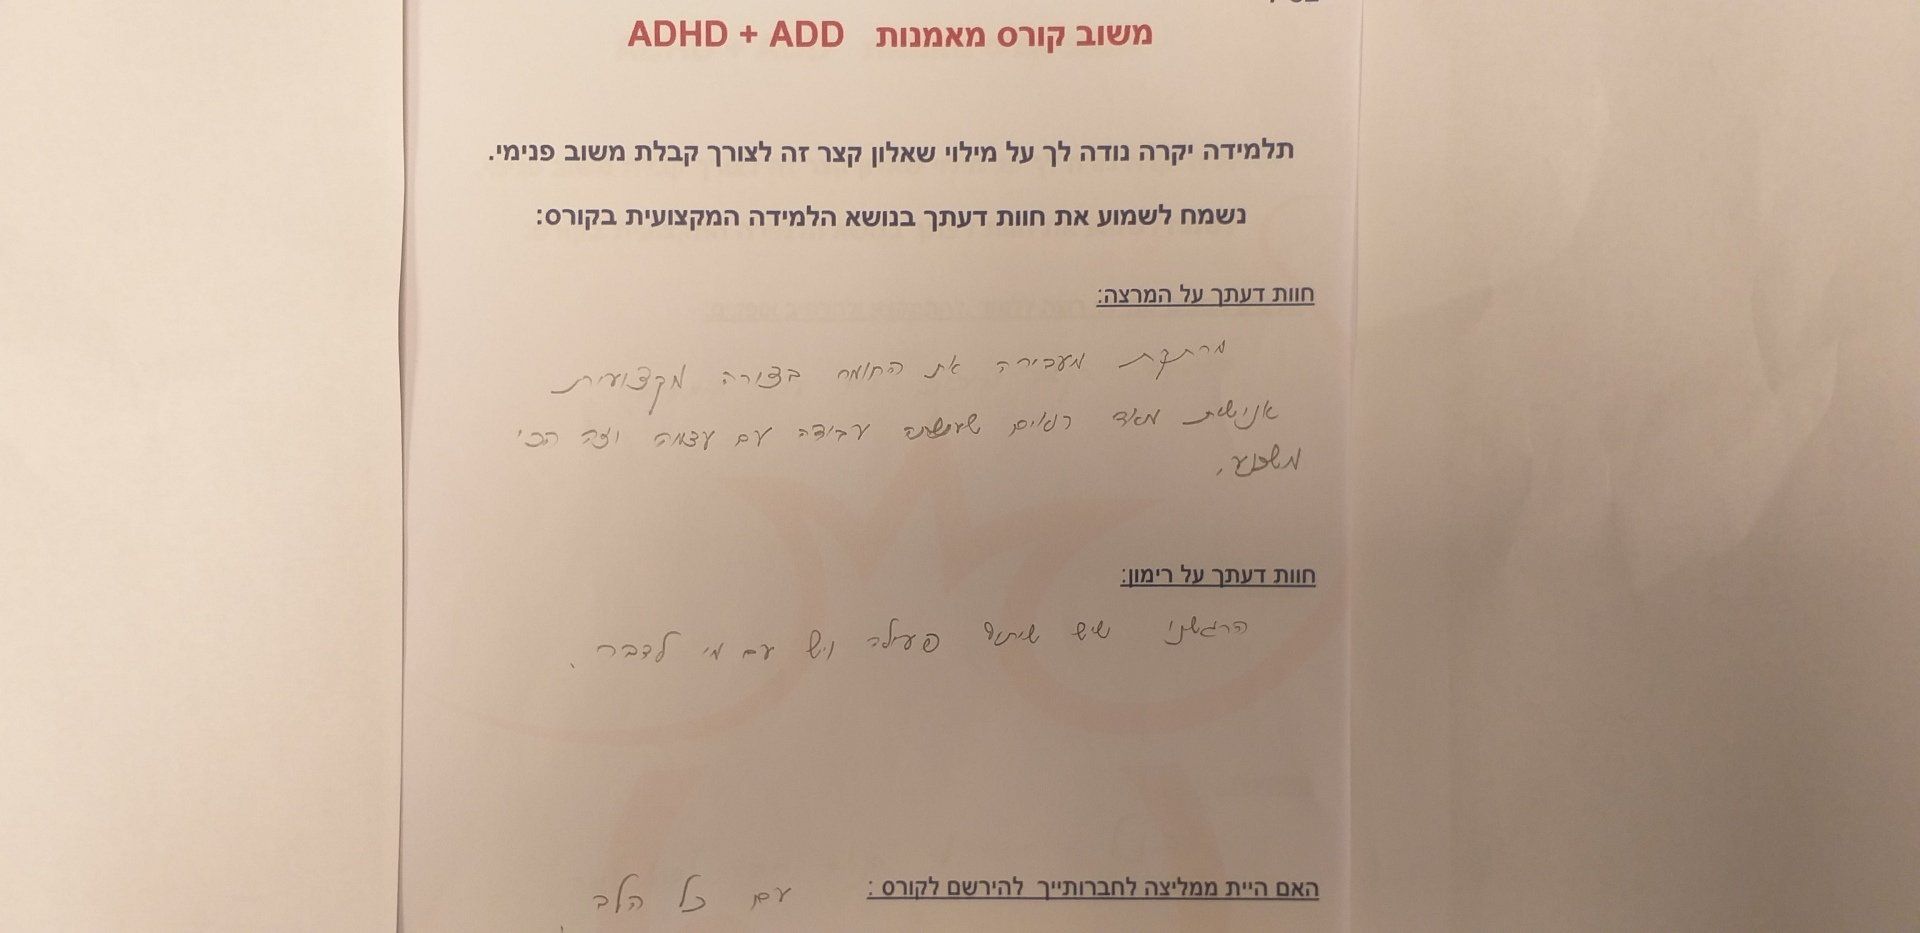 משוב קורס מאמנות ADHD + ADD
תלמידה יקרה נודה לך על מילוי שאלון קצר זה לצורך קבלת משוב פנימי.
נשמח לשמוע את חוות דעתך בנושא הלמידה המקצועית בקורס:
חוות דעתך על המרצה:
מרתקת מעבירה את החומר בצורה מקצועית
אנושית מאד רואים שעשתה עבודה עם עצמה וזה הכי
משכנע.
חוות דעתך על רימון:
הרגשתי שיש שיתוף פעולה ויש עם מי לדבר.
האם היית ממליצה לחברותייך להירשם לקורס : עם כל הלב